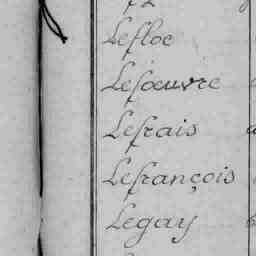 Lefloc
Lefœuvre
Lefrais
Lefrançois
Legay